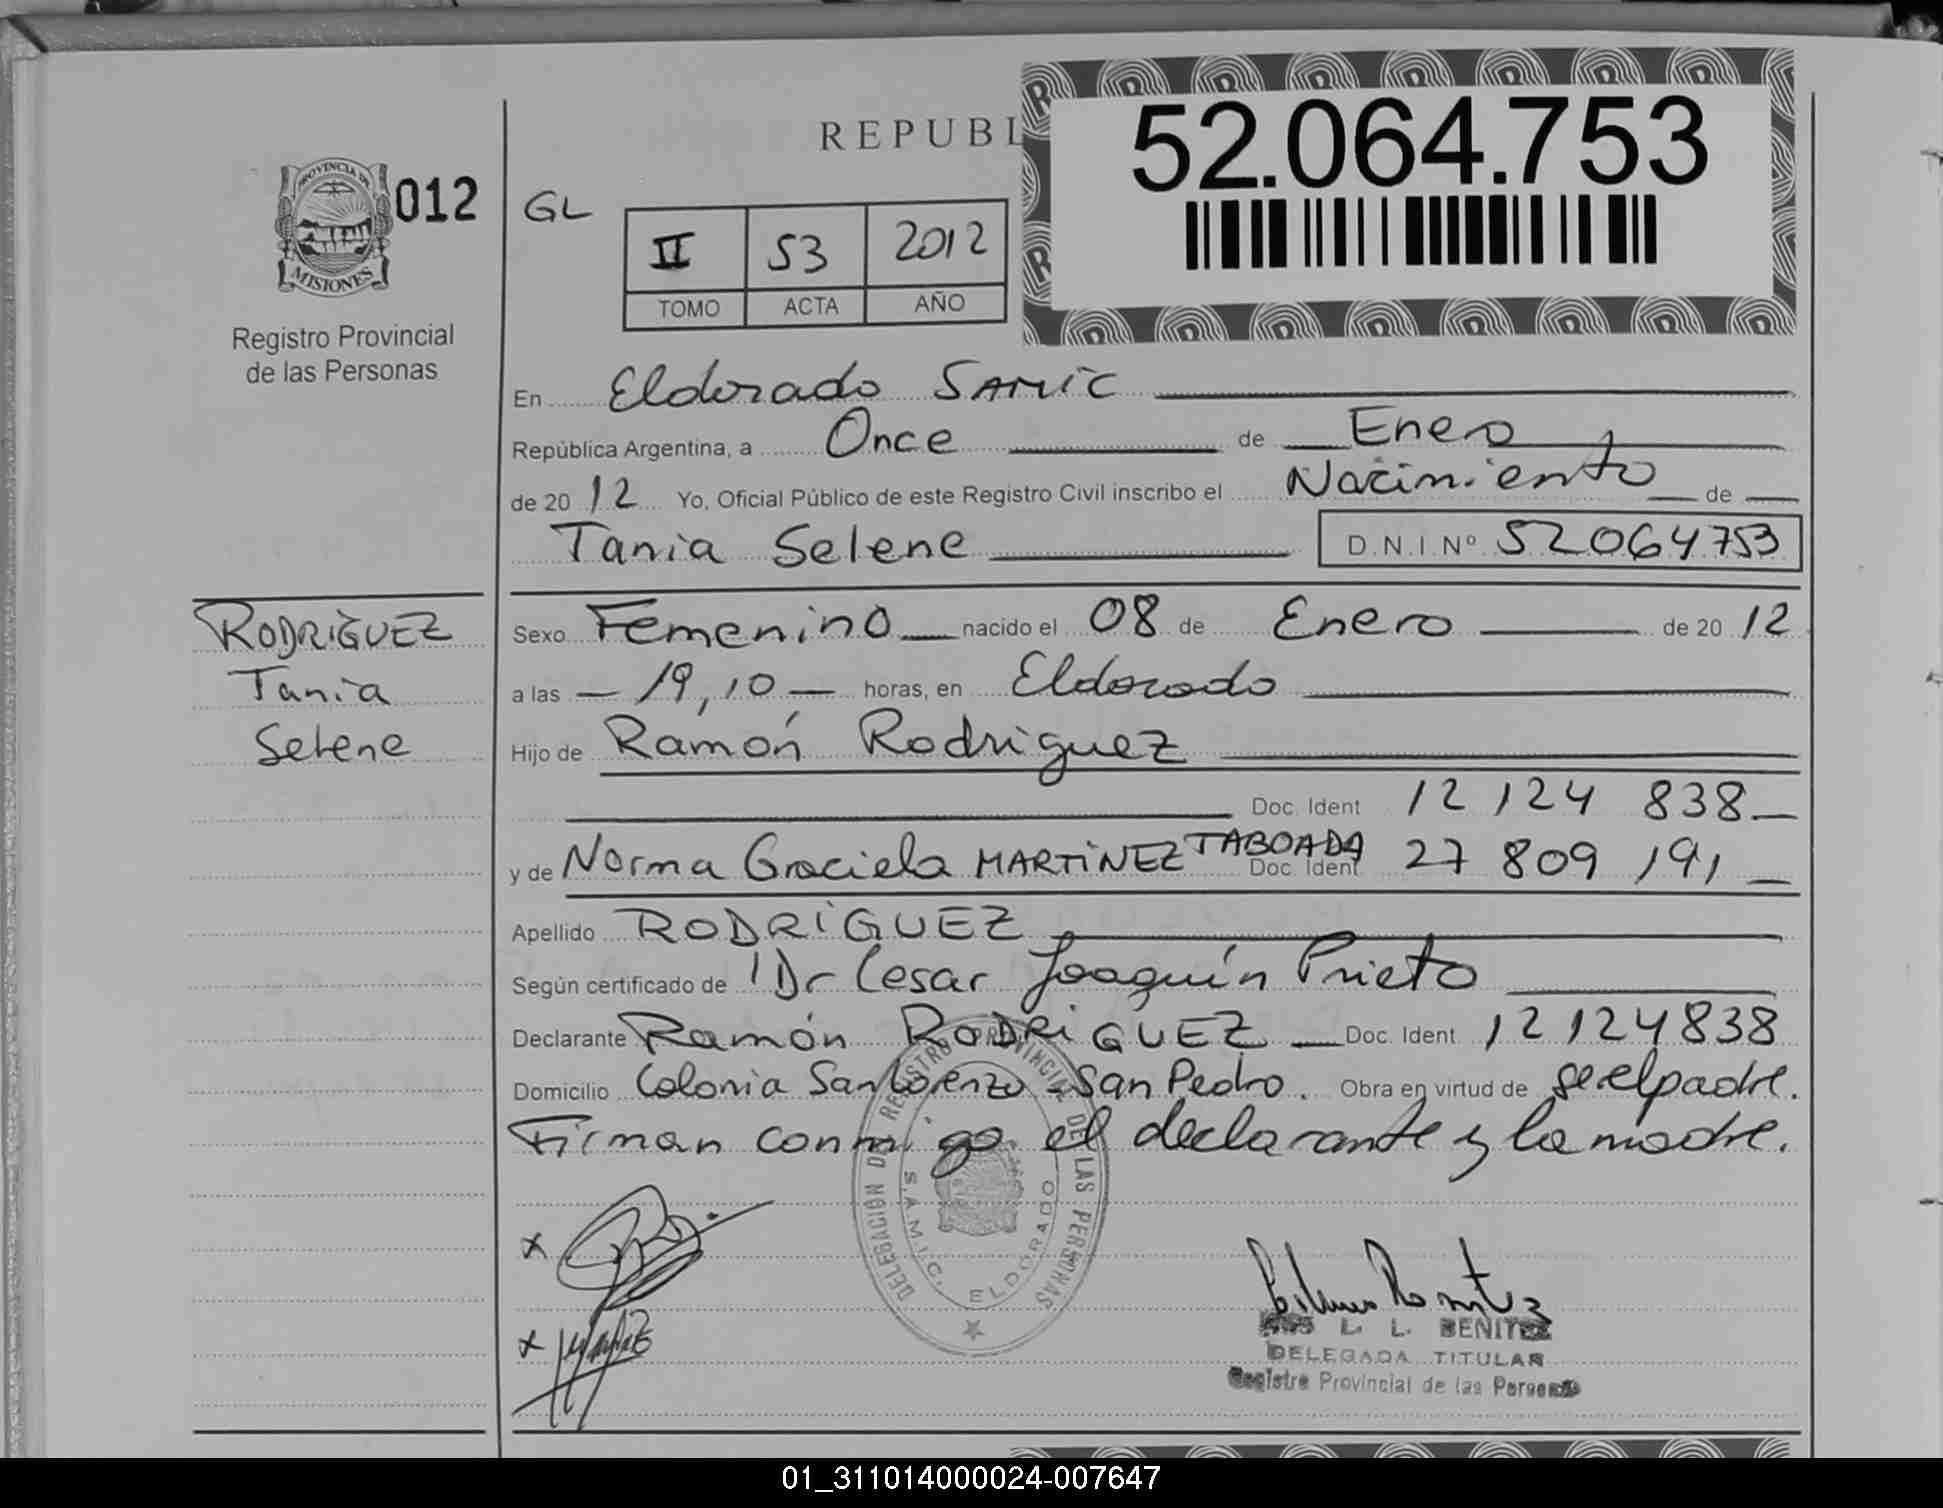 REPUBL
52.064.753
PROVINCIA DE
MISIONES
012
GL
II 53 2012
TOMO ACTA AÑO
Registro Provincial
de las Personas
En Eldorado SAMIC
República Argentina, a Once de Enero
de 2012 Yo, Oficial Público de este Registro Civil inscribo el Nacimiento de
Tania Selene D.N.I.Nº 52064753
RODRIGUEZ
Tania
Selene
Sexo Femenino nacido el 08 de Enero de 2012
a las 19,10 horas, en Eldorado
Hijo de Ramón Rodríguez
Doc. Ident 12 124 838
y de Norma Graciela MARTINEZ TABOADA Doc. Ident 27 809 191
Apellido RODRIGUEZ
Según certificado de Dr Cesar Joaquín Prieto
Declarante Ramón RODRIGUEZ Doc. Ident. 12124838
Domicilio Colonia San Lorenzo - San Pedro. Obra en virtud de ser el padre.
Firman conmigo el declarante y la madre.
DELEGACIÓN DEL REGISTRO PROVINCIAL DE LAS PERSONAS
S.A.M.I.C. ELDORADO
x
x
L. L. BENITEZ
DELEGADA TITULAR
Registro Provincial de las Personas
01_311014000024-007647